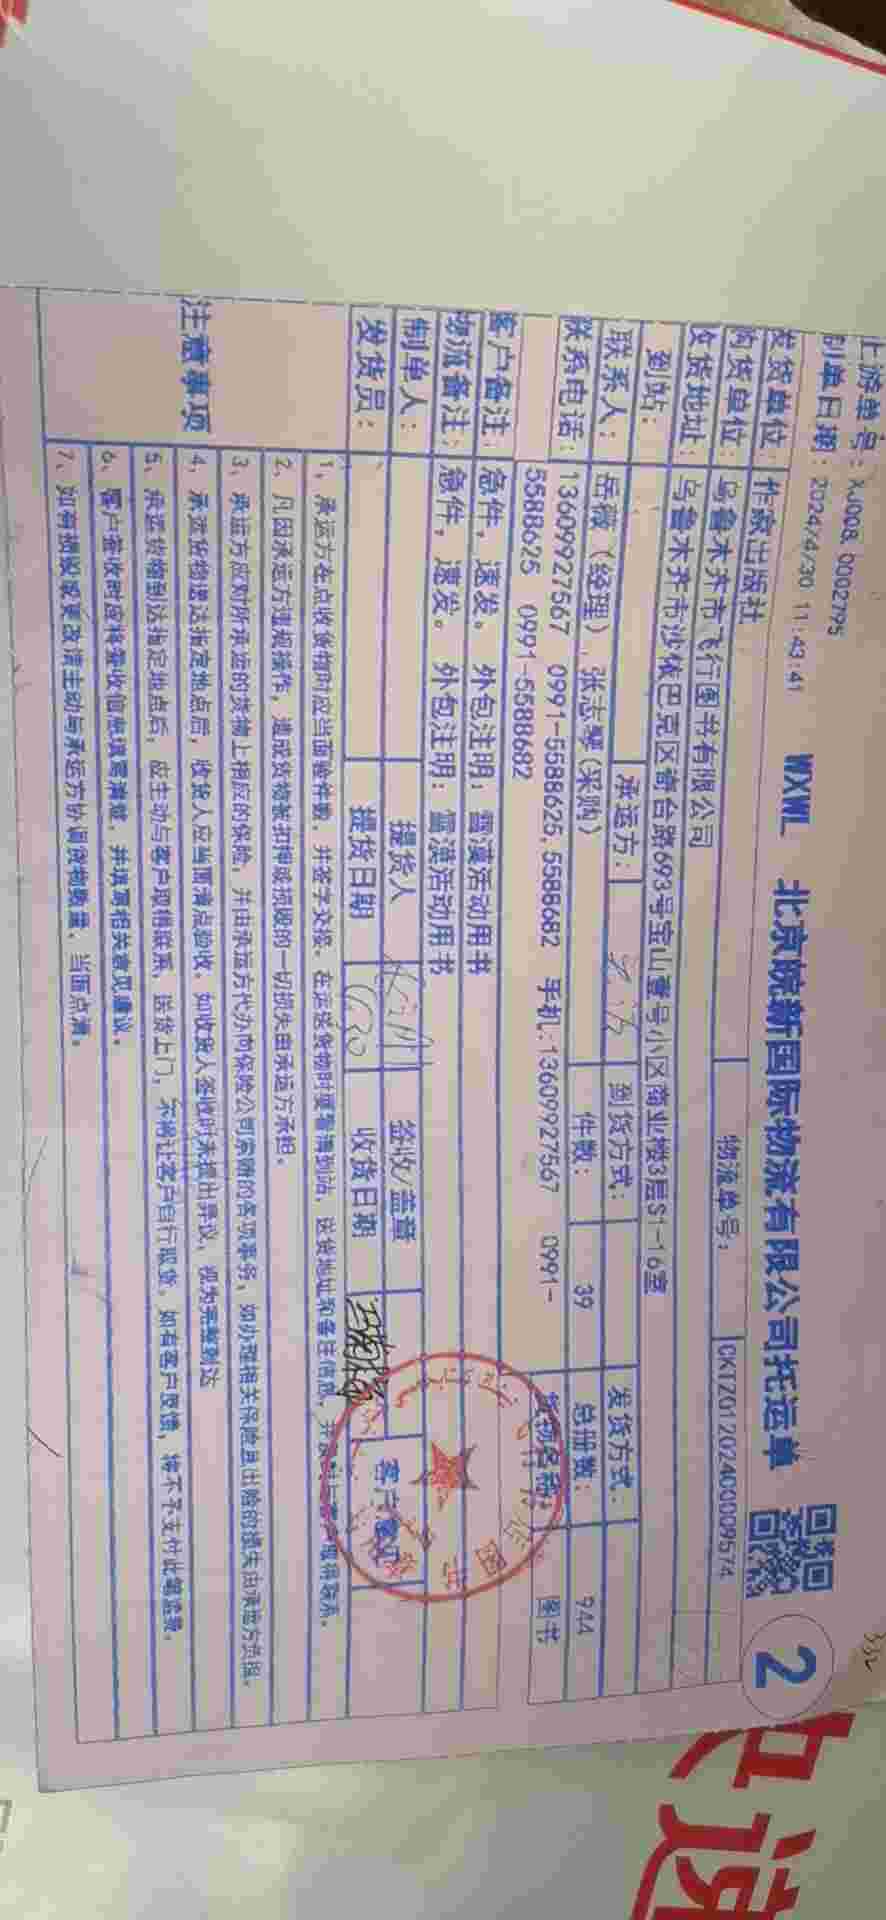 上游单号：XJ008 0002795
制单日期：2024/4/30 11:43:41
WXWL 北京皖新国际物流有限公司托运单
2
发货单位：作家出版社
物流单号：CKTZ01202400009574
购货单位：乌鲁木齐市飞行图书有限公司
收货地址：乌鲁木齐市沙依巴克区青台路693号宝山壹号小区商业楼3层S1-16室
到站： 承运方： 到货方式： 发货方式：
联系人：岳薇（经理），张志琴（采购） 件数： 39 总册数： 944
联系电话：13609927567 0991-5588625,5588682 手机:13609927567 0991-
5588625 0991-5588682
货物名称： 图书
客户备注：急件，速发。 外包注明：雪漠活动用书
物流备注：急件，速发。 外包注明：雪漠活动用书
制单人： 提货人 签收/盖章
发货员： 提货日期 收货日期
注意事项
1、承运方在点收货物时应当面验件数，并签字交接。在运送货物时要看清到站、送货地址和备注信息，并及时与客户取得联系。
2、凡因承运方违规操作，造成货物被扣押或损毁的一切损失由承运方承担。
3、承运方应对所承运的货物上相应的保险，并由承运方代办向保险公司索赔的各项事务，如办理相关保险且出险的损失由承运方负担。
4、承运货物送达指定地点后，收货人应当面清点验收，如收货人签收时未提出异议，视为完整到达
5、承运货物到达指定地点后，应主动与客户取得联系，送货上门，不得让客户自行取货，如有客户反馈，将不予支付此笔运费。
6、客户签收时应将签收信息填写清楚，并填写相关意见建议。
7、如有损毁或更改请主动与承运方协调货物数量，当面点清。